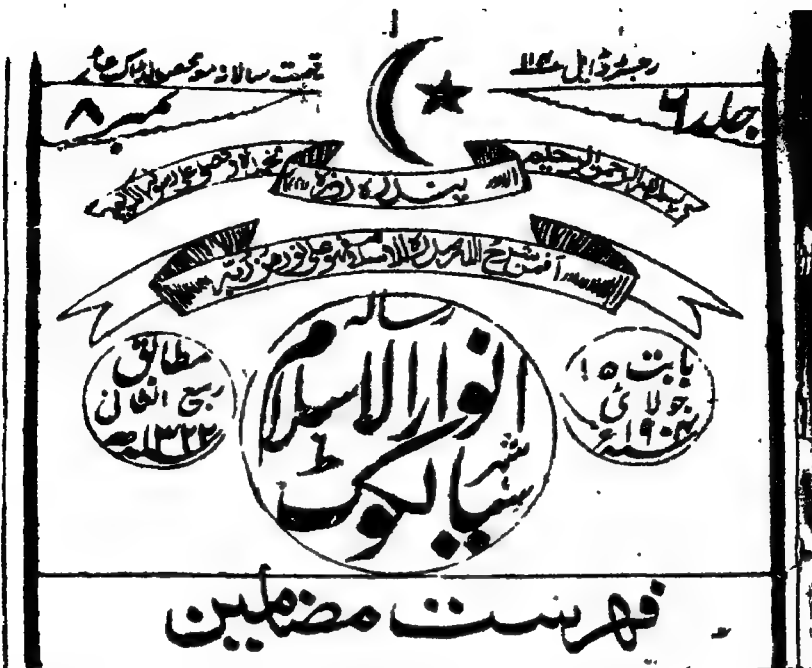 رجسٹرڈ ایل
قیمت سالانہ مع محصولڈاک
جلد ۶
نمبر ۸
بسم اللہ الرحمن الرحیم
پندرہ روزہ
نحمدہ و نصلی علی رسولہ الکریم
افمن شرح اللہ صدرہ للاسلام فہو علی نور من ربہ
بابت ۱۵
جولائی
۱۹۰۴ء
رسالہ
انوار الاسلام
شہر
سیالکوٹ
مطابق
ربیع الثانی
۱۳۲۲ھ
فہرست مضامین